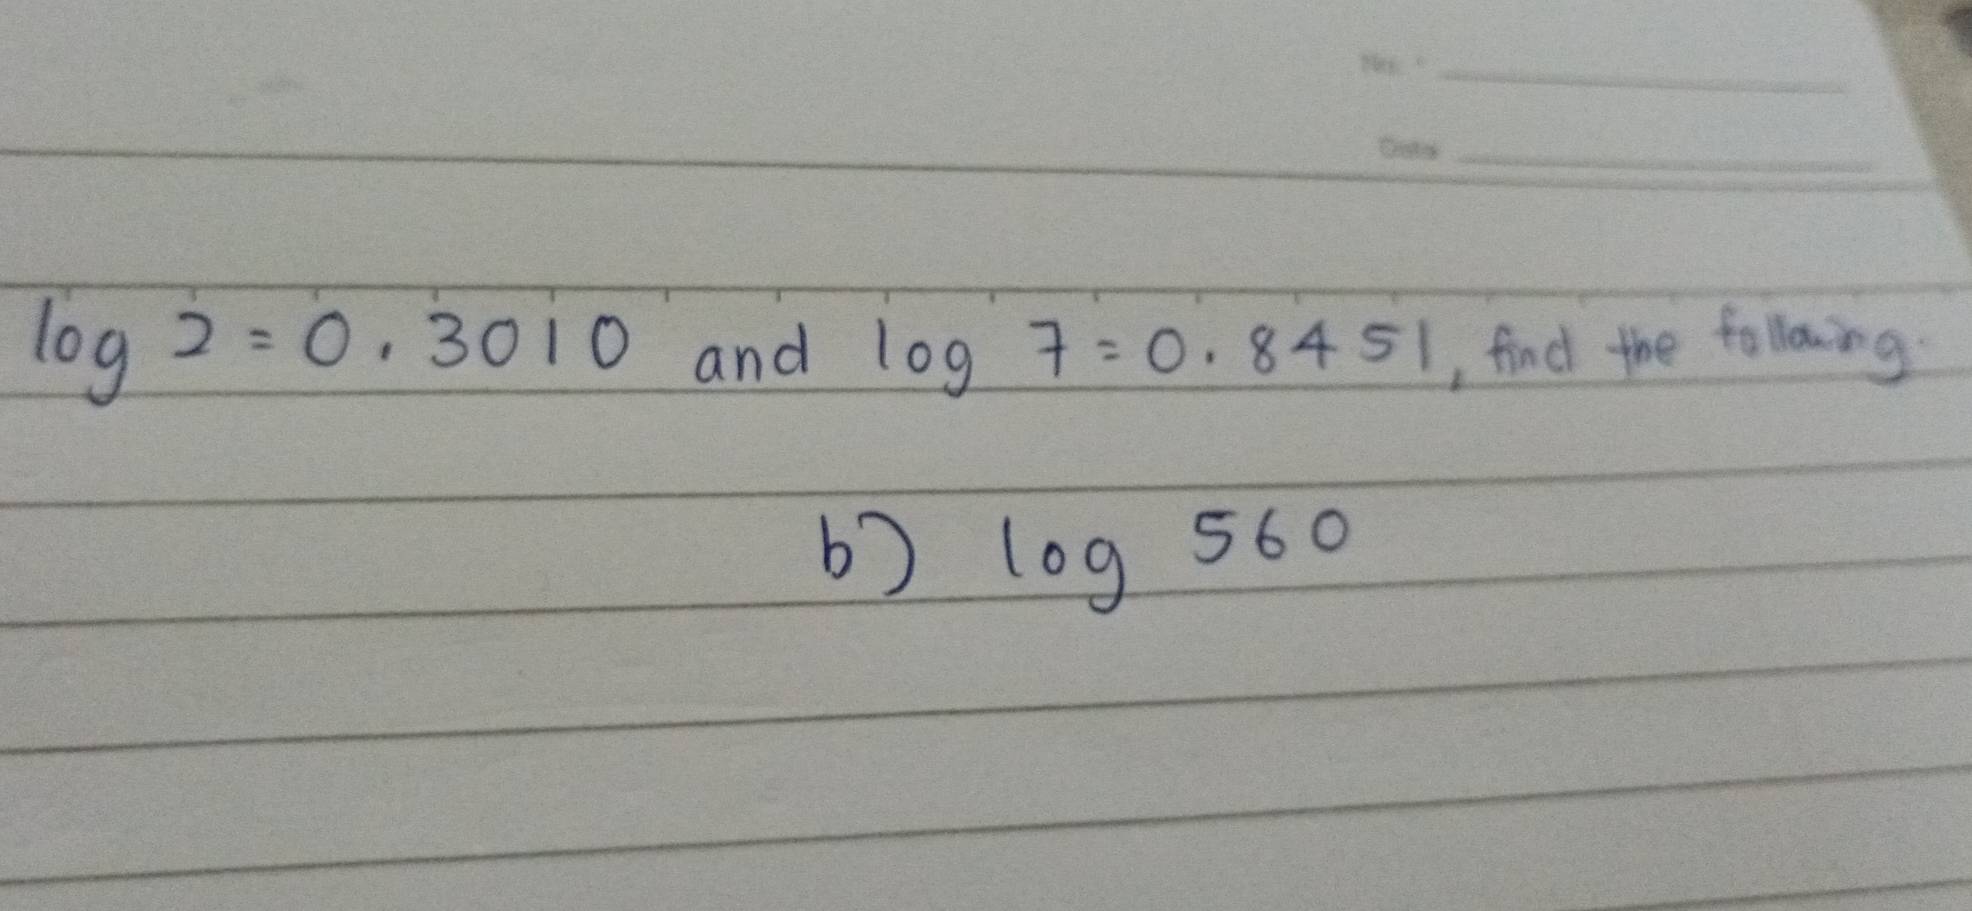 No.
Date
log 2 = 0.3010 and log 7 = 0.8451, find the following.
b) log 560